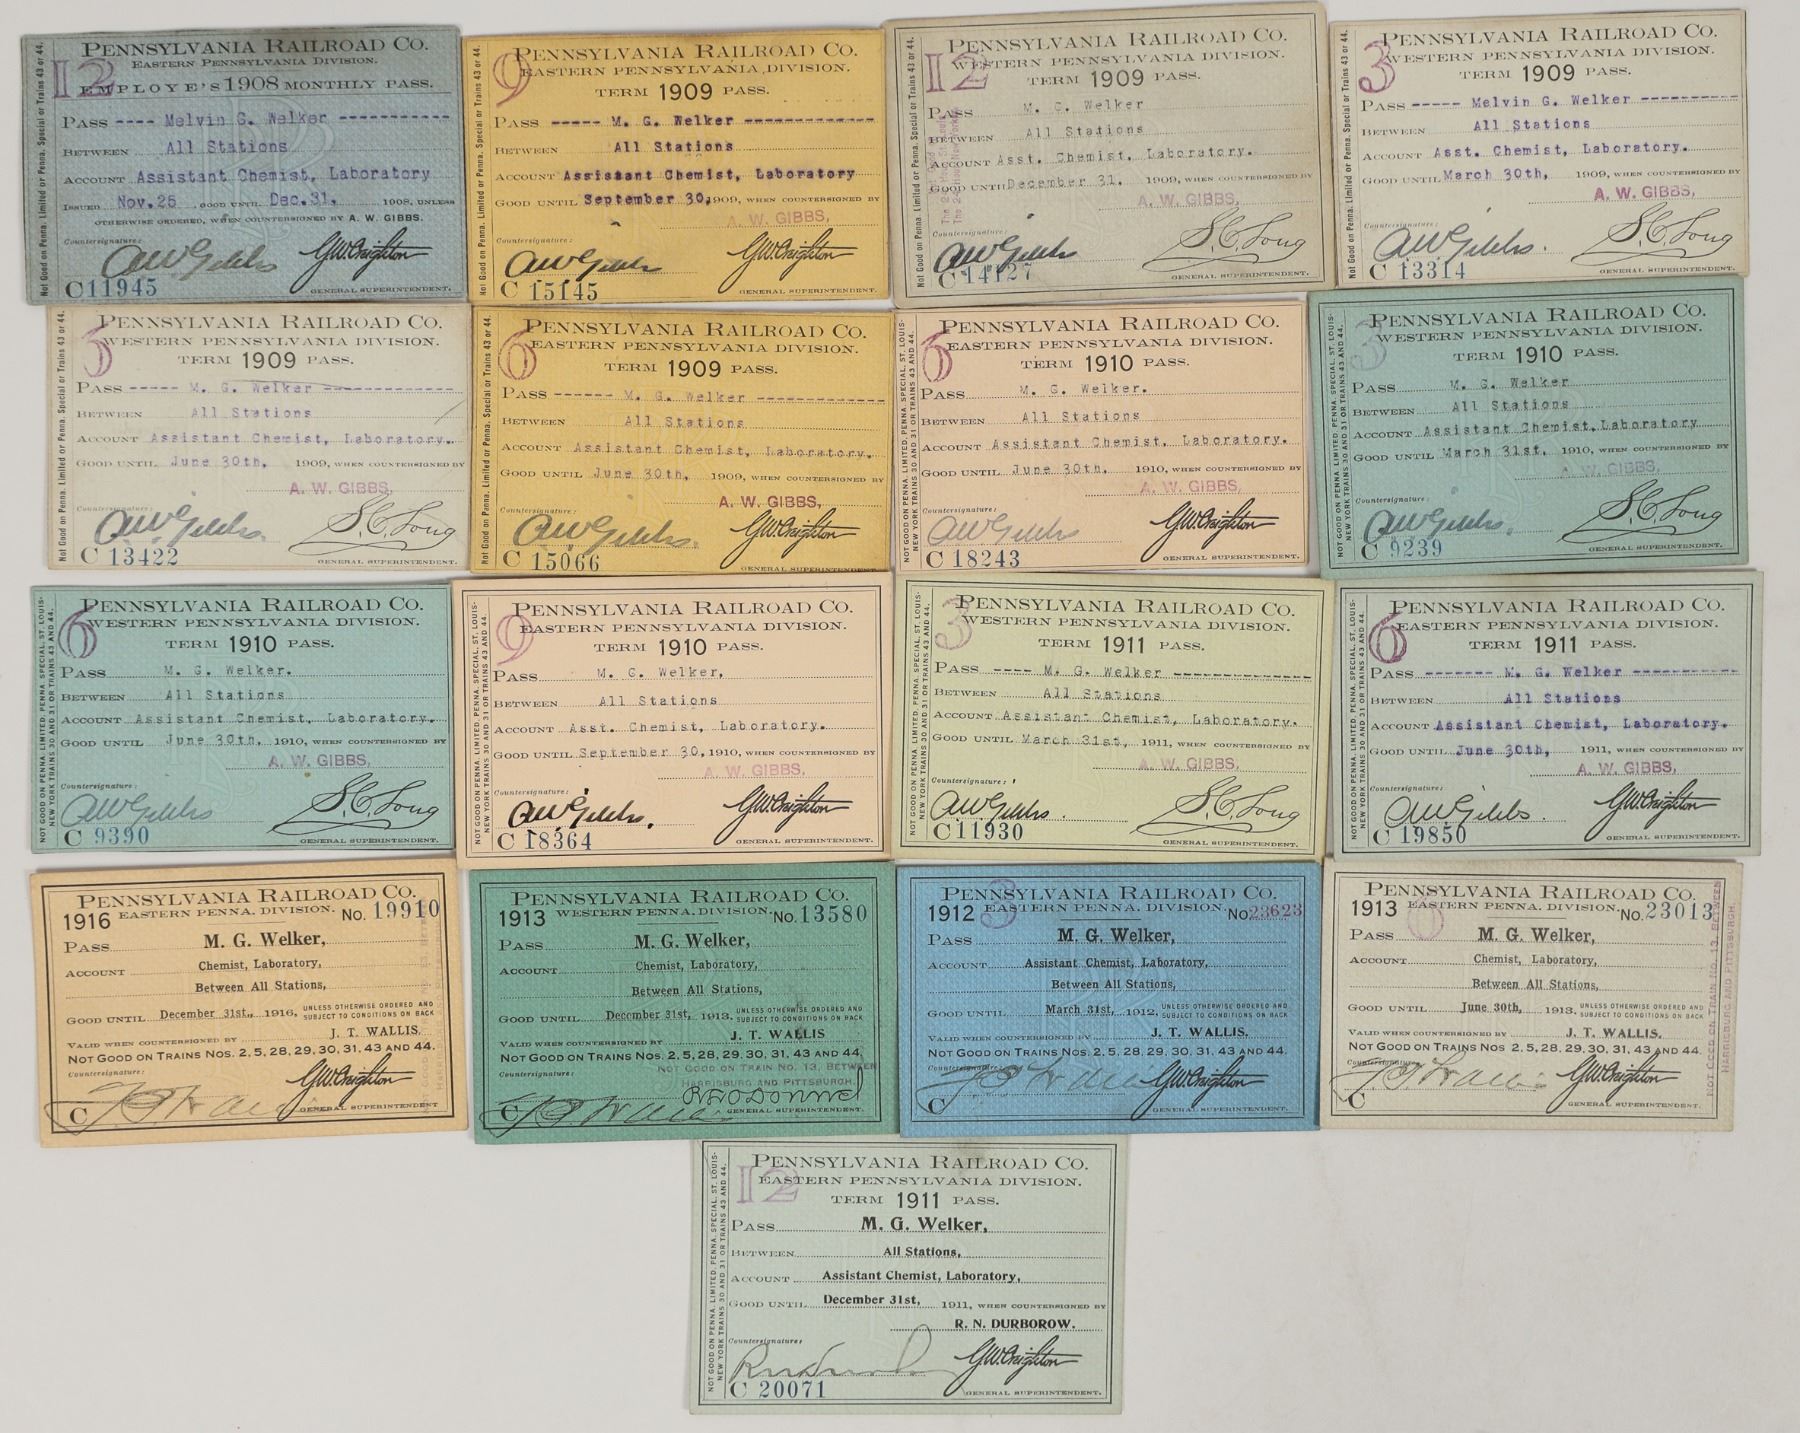 12
PENNSYLVANIA RAILROAD CO.
EASTERN PENNSYLVANIA DIVISION.
EMPLOYE'S 1908 MONTHLY PASS.
PASS ---- Melvin G. Welker -----------
BETWEEN All Stations
ACCOUNT Assistant Chemist, Laboratory
ISSUED Nov.25 GOOD UNTIL Dec.31, 1908, UNLESS
OTHERWISE ORDERED, WHEN COUNTERSIGNED BY A. W. GIBBS.
Countersignature:
AWGibbs GW.Creighton
C 11945 GENERAL SUPERINTENDENT.
Not Good on Penna. Limited or Penna. Special or Trains 43 or 44.
9
PENNSYLVANIA RAILROAD CO.
EASTERN PENNSYLVANIA DIVISION.
TERM 1909 PASS.
PASS ----- M. G. Welker --------------
BETWEEN All Stations
ACCOUNT Assistant Chemist, Laboratory
GOOD UNTIL September 30, 1909, WHEN COUNTERSIGNED BY
A. W. GIBBS,
Countersignature:
AWGibbs GW.Creighton
C 15145 GENERAL SUPERINTENDENT.
Not Good on Penna. Limited or Penna. Special or Trains 43 or 44.
12
PENNSYLVANIA RAILROAD CO.
WESTERN PENNSYLVANIA DIVISION.
TERM 1909 PASS.
PASS M. G. Welker
BETWEEN All Stations
ACCOUNT Asst. Chemist, Laboratory.
GOOD UNTIL December 31, 1909, WHEN COUNTERSIGNED BY
A. W. GIBBS,
Countersignature:
AWGibbs S.C.Long
C 14127 GENERAL SUPERINTENDENT.
Not Good on Penna. Limited or Penna. Special or Trains 43 or 44.
3
PENNSYLVANIA RAILROAD CO.
WESTERN PENNSYLVANIA DIVISION.
TERM 1909 PASS.
PASS ----- Melvin G. Welker ----------
BETWEEN All Stations
ACCOUNT Asst. Chemist, Laboratory.
GOOD UNTIL March 30th, 1909, WHEN COUNTERSIGNED BY
A. W. GIBBS,
Countersignature:
AWGibbs. S.C.Long
C 13314 GENERAL SUPERINTENDENT.
Not Good on Penna. Limited or Penna. Special or Trains 43 or 44.
6
PENNSYLVANIA RAILROAD CO.
WESTERN PENNSYLVANIA DIVISION.
TERM 1909 PASS.
PASS ----- M. G. Welker --------------
BETWEEN All Stations
ACCOUNT Assistant Chemist, Laboratory.
GOOD UNTIL June 30th, 1909, WHEN COUNTERSIGNED BY
A. W. GIBBS,
Countersignature:
AWGibbs. S.C.Long
C 13422 GENERAL SUPERINTENDENT.
Not Good on Penna. Limited or Penna. Special or Trains 43 or 44.
6
PENNSYLVANIA RAILROAD CO.
EASTERN PENNSYLVANIA DIVISION.
TERM 1909 PASS.
PASS ------ M. G. Welker --------------
BETWEEN All Stations
ACCOUNT Assistant Chemist, Laboratory.
GOOD UNTIL June 30th, 1909, WHEN COUNTERSIGNED BY
A. W. GIBBS,
Countersignature:
AWGibbs. GW.Creighton
C 15066 GENERAL SUPERINTENDENT.
Not Good on Penna. Limited or Penna. Special or Trains 43 or 44.
6
PENNSYLVANIA RAILROAD CO.
EASTERN PENNSYLVANIA DIVISION.
TERM 1910 PASS.
PASS M. G. Welker.
BETWEEN All Stations
ACCOUNT Assistant Chemist, Laboratory.
GOOD UNTIL June 30th, 1910, WHEN COUNTERSIGNED BY
A. W. GIBBS,
Countersignature:
AWGibbs GW.Creighton
C 18243 GENERAL SUPERINTENDENT.
NOT GOOD ON PENNA. LIMITED, PENNA. SPECIAL, ST. LOUIS-
NEW YORK TRAINS 30 AND 31 OR TRAINS 43 AND 44.
3
PENNSYLVANIA RAILROAD CO.
WESTERN PENNSYLVANIA DIVISION.
TERM 1910 PASS.
PASS M. G. Welker
BETWEEN All Stations
ACCOUNT Assistant Chemist, Laboratory
GOOD UNTIL March 31st, 1910, WHEN COUNTERSIGNED BY
A. W. GIBBS,
Countersignature:
AWGibbs. S.C.Long
C 9239 GENERAL SUPERINTENDENT.
NOT GOOD ON PENNA. LIMITED, PENNA. SPECIAL, ST. LOUIS-
NEW YORK TRAINS 30 AND 31 OR TRAINS 43 AND 44.
6
PENNSYLVANIA RAILROAD CO.
WESTERN PENNSYLVANIA DIVISION.
TERM 1910 PASS.
PASS M. G. Welker.
BETWEEN All Stations
ACCOUNT Assistant Chemist, Laboratory.
GOOD UNTIL June 30th, 1910, WHEN COUNTERSIGNED BY
A. W. GIBBS,
Countersignature:
AWGibbs S.C.Long
C 9390 GENERAL SUPERINTENDENT.
NOT GOOD ON PENNA. LIMITED, PENNA. SPECIAL, ST. LOUIS-
NEW YORK TRAINS 30 AND 31 OR TRAINS 43 AND 44.
9
PENNSYLVANIA RAILROAD CO.
EASTERN PENNSYLVANIA DIVISION.
TERM 1910 PASS.
PASS M. G. Welker,
BETWEEN All Stations
ACCOUNT Asst. Chemist, Laboratory.
GOOD UNTIL September 30, 1910, WHEN COUNTERSIGNED BY
A. W. GIBBS,
Countersignature:
AWGibbs. GW.Creighton
C 18364 GENERAL SUPERINTENDENT.
NOT GOOD ON PENNA. LIMITED, PENNA. SPECIAL, ST. LOUIS-
NEW YORK TRAINS 30 AND 31 OR TRAINS 43 AND 44.
3
PENNSYLVANIA RAILROAD CO.
WESTERN PENNSYLVANIA DIVISION.
TERM 1911 PASS.
PASS ---- M. G. Welker --------------
BETWEEN All Stations
ACCOUNT Assistant Chemist, Laboratory.
GOOD UNTIL March 31st, 1911, WHEN COUNTERSIGNED BY
A. W. GIBBS,
Countersignature:
AWGibbs. S.C.Long
C 11930 GENERAL SUPERINTENDENT.
NOT GOOD ON PENNA. LIMITED, PENNA. SPECIAL, ST. LOUIS-
NEW YORK TRAINS 30 AND 31 OR TRAINS 43 AND 44.
6
PENNSYLVANIA RAILROAD CO.
EASTERN PENNSYLVANIA DIVISION.
TERM 1911 PASS.
PASS ------- M. G. Welker -----------
BETWEEN All Stations
ACCOUNT Assistant Chemist, Laboratory.
GOOD UNTIL June 30th, 1911, WHEN COUNTERSIGNED BY
A. W. GIBBS,
Countersignature:
AWGibbs. GW.Creighton
C 19850 GENERAL SUPERINTENDENT.
NOT GOOD ON PENNA. LIMITED, PENNA. SPECIAL, ST. LOUIS-
NEW YORK TRAINS 30 AND 31 OR TRAINS 43 AND 44.
PENNSYLVANIA RAILROAD CO.
1916 EASTERN PENNA. DIVISION. No. 19910
PASS M. G. Welker,
ACCOUNT Chemist, Laboratory,
Between All Stations,
GOOD UNTIL December 31st, 1916, UNLESS OTHERWISE ORDERED AND
SUBJECT TO CONDITIONS ON BACK
VALID WHEN COUNTERSIGNED BY J. T. WALLIS
NOT GOOD ON TRAINS NOS. 2, 5, 28, 29, 30, 31, 43 AND 44.
Countersignature:
J T Wallis GW.Creighton
C GENERAL SUPERINTENDENT
PENNSYLVANIA RAILROAD CO.
1913 WESTERN PENNA. DIVISION. No. 13580
PASS M. G. Welker,
ACCOUNT Chemist, Laboratory,
Between All Stations,
GOOD UNTIL December 31st, 1913, UNLESS OTHERWISE ORDERED AND
SUBJECT TO CONDITIONS ON BACK
VALID WHEN COUNTERSIGNED BY J. T. WALLIS
NOT GOOD ON TRAINS NOS. 2, 5, 28, 29, 30, 31, 43 AND 44.
Countersignature:
NOT GOOD ON TRAIN NO. 13, BETWEEN
HARRISBURG AND PITTSBURGH.
J T Wallis R L O'Donnel
C GENERAL SUPERINTENDENT.
3
PENNSYLVANIA RAILROAD CO.
1912 EASTERN PENNA. DIVISION. No 23623
PASS M. G. Welker,
ACCOUNT Assistant Chemist, Laboratory,
Between All Stations,
GOOD UNTIL March 31st, 1912, UNLESS OTHERWISE ORDERED AND
SUBJECT TO CONDITIONS ON BACK
VALID WHEN COUNTERSIGNED BY J. T. WALLIS.
NOT GOOD ON TRAINS NOS. 2, 5, 28, 29, 30, 31, 43 AND 44.
Countersignature:
J T Wallis GW.Creighton
C GENERAL SUPERINTENDENT.
6
PENNSYLVANIA RAILROAD CO.
1913 EASTERN PENNA. DIVISION. No. 23013
PASS M. G. Welker,
ACCOUNT Chemist, Laboratory,
Between All Stations,
GOOD UNTIL June 30th, 1913, UNLESS OTHERWISE ORDERED AND
SUBJECT TO CONDITIONS ON BACK
VALID WHEN COUNTERSIGNED BY J. T. WALLIS.
NOT GOOD ON TRAINS NOS. 2, 5, 28, 29, 30, 31, 43 AND 44.
Countersignature:
J T Wallis GW.Creighton
C GENERAL SUPERINTENDENT.
NOT GOOD ON TRAIN NO. 13, BETWEEN
HARRISBURG AND PITTSBURGH.
12
PENNSYLVANIA RAILROAD CO.
EASTERN PENNSYLVANIA DIVISION.
TERM 1911 PASS.
PASS M. G. Welker,
BETWEEN All Stations,
ACCOUNT Assistant Chemist, Laboratory,
GOOD UNTIL December 31st, 1911, WHEN COUNTERSIGNED BY
R. N. DURBOROW.
Countersignature:
RNDurborow GW.Creighton
C 20071 GENERAL SUPERINTENDENT.
NOT GOOD ON PENNA. LIMITED, PENNA. SPECIAL, ST. LOUIS-
NEW YORK TRAINS 30 AND 31 OR TRAINS 43 AND 44.